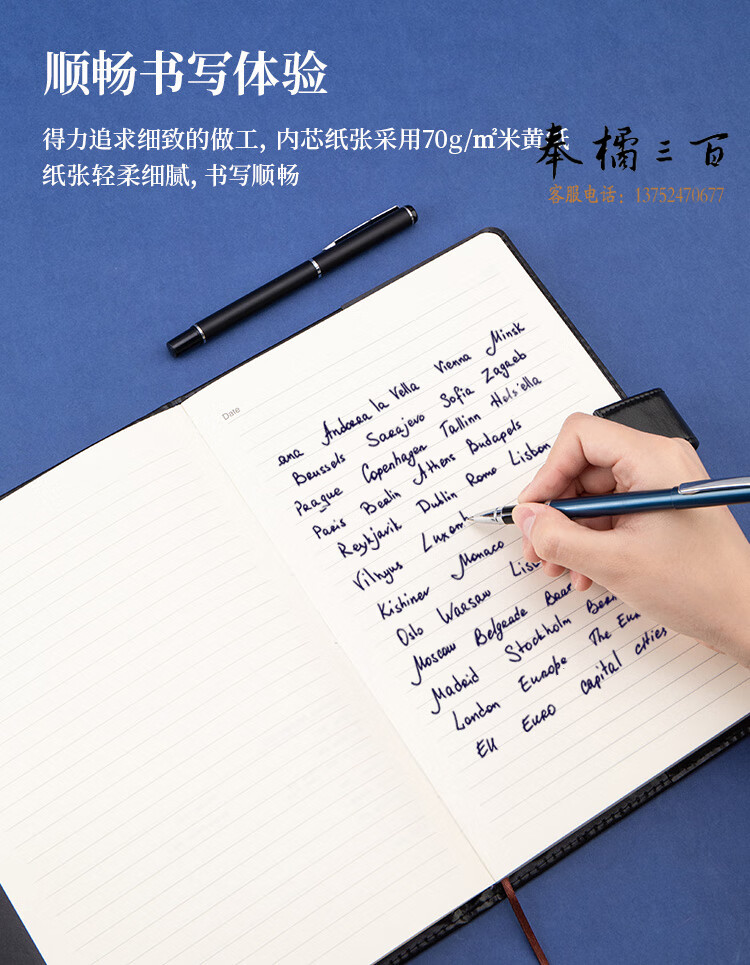 顺畅书写体验
得力追求细致的做工, 内芯纸张采用70g/㎡米黄纸
纸张轻柔细腻, 书写顺畅
奉橘三百
客服电话：13752470677
Date
ana Andorra la Vella Vienna Minsk
Brussels Sarajevo Sofia Zagreb
Prague Copenhagen Tallinn Hels'ella
Paris Berlin Athens Budapels
Reykjavik Dublin Rome Lisbon
Vilnyus Luxemb
Kishinev Monaco
Oslo Warsaw Lisb
Moscow Belgrade
Madrid Stockholm Bern
London Europe The Eur
EU EURO capital cities